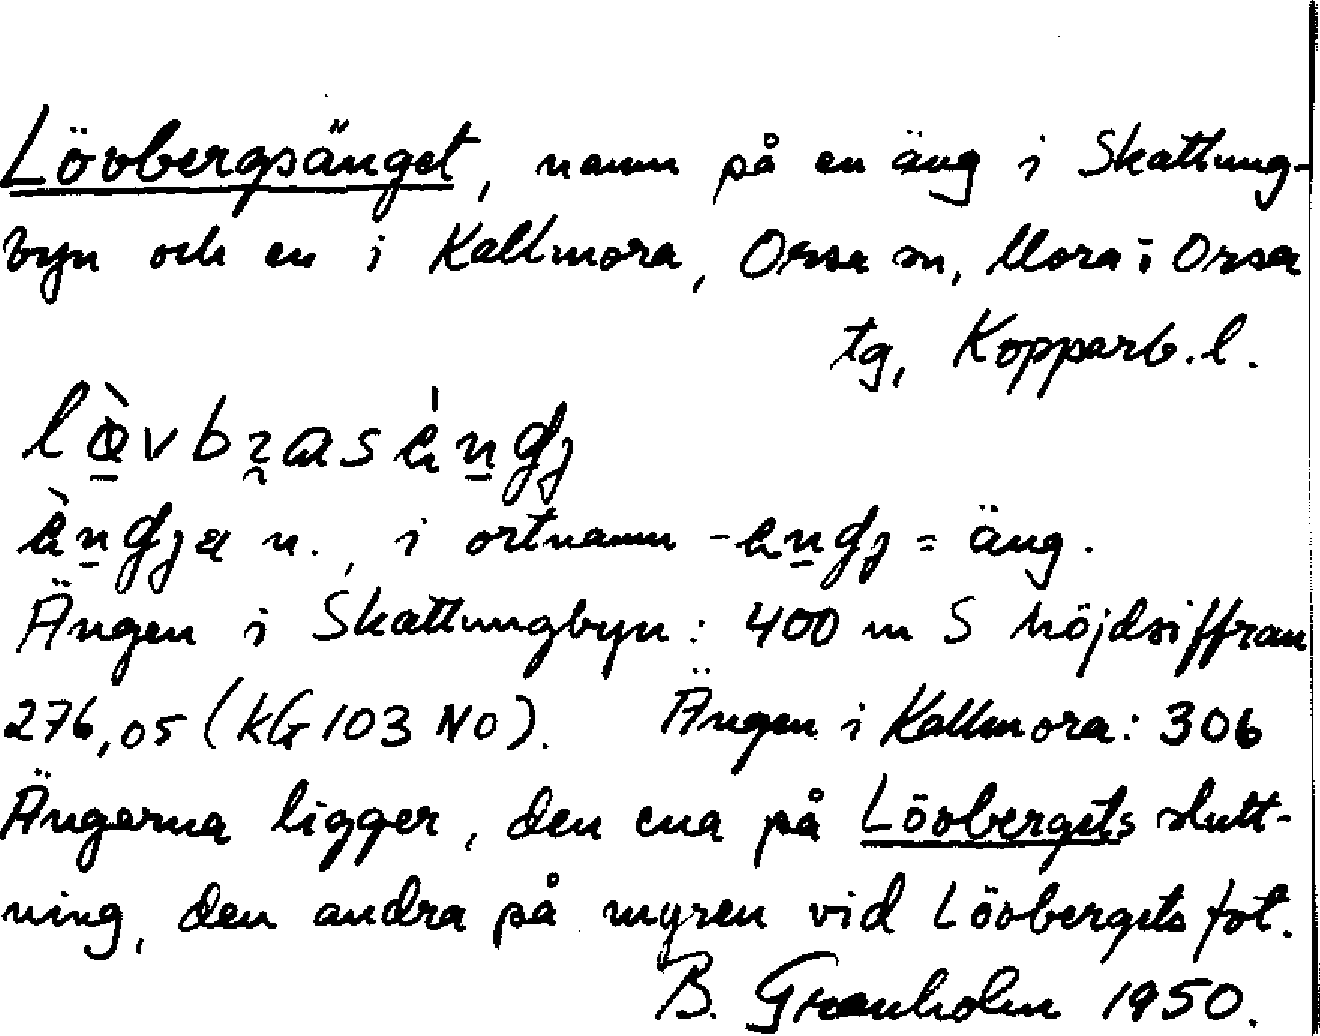 Lövbergsänget, namn på en äng i Skattung-
byn och en i Kallmora, Orsa sn, Mora i Orsa
tg, Kopparb.l.
n. i ortnamn = äng.
Ängen i Skattungbyn: 400 m S höjdsiffran
276,05 (KG 103 NO). Ängen i Kallmora: 306
Ängarna ligger, den ena på Lövbergets slutt-
ning, den andra på myren vid Lövbergets fot.
B. Granholm 1950.